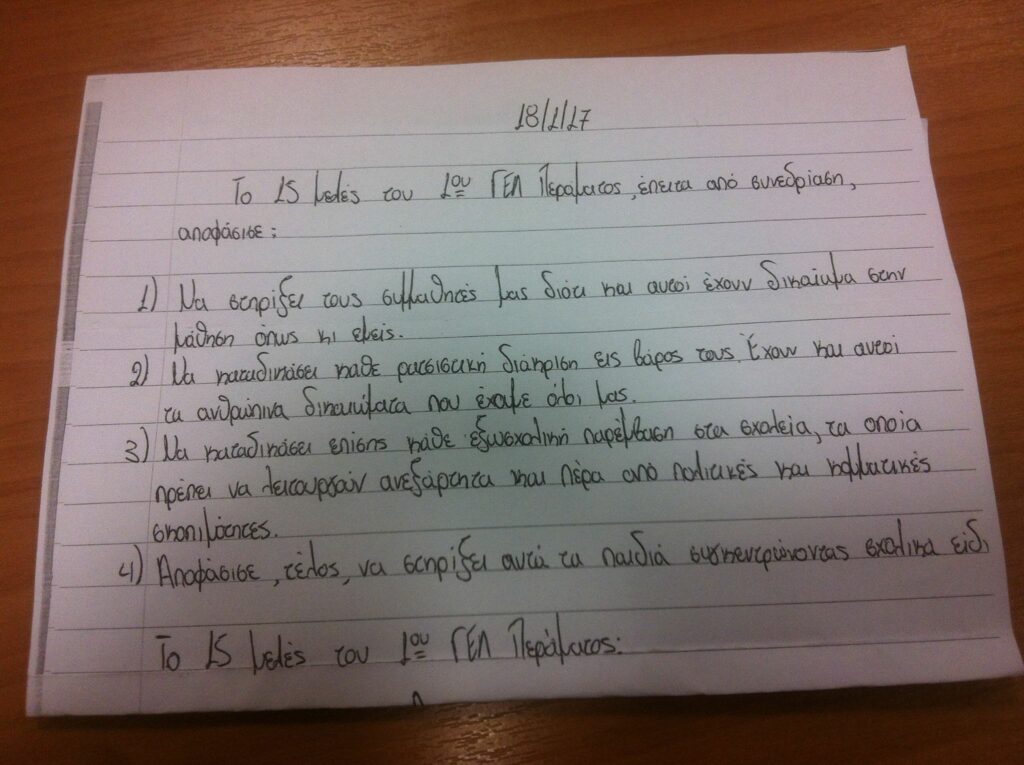 18/1/17
Το 15 μελές του 1ου ΓΕΛ Περάματος, έπειτα από συνεδρίαση,
αποφάσισε:
1) Να στηρίξει τους συμμαθητές μας διότι και αυτοί έχουν δικαίωμα στην
μάθηση όπως κι εμείς.
2) Να καταδικάσει κάθε ρατσιστική διάκριση εις βάρος τους. Έχουν και αυτοί
τα ανθρώπινα δικαιώματα που έχουμε όλοι μας.
3) Να καταδικάσει επίσης κάθε εξωσχολική παρέμβαση στα σχολεία, τα οποία
πρέπει να λειτουργούν ανεξάρτητα και πέρα από πολιτικές και κομματικές
σκοπιμότητες.
4) Αποφάσισε, τέλος, να στηρίξει αυτά τα παιδιά συγκεντρώνοντας σχολικά είδ
Το 15 μελές του 1ου ΓΕΛ Περάματος: